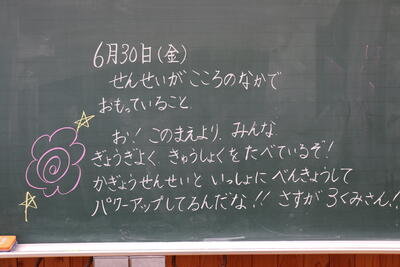 6月30日(金)
せんせいが こころのなかで
おもっていること。
お！このまえより、みんな
ぎょうぎよく、きゅうしょくをたべているぞ！
かぎょうせんせいと いっしょに べんきょうして
パワーアップしてるんだな！！ さすが 3くみさん！！